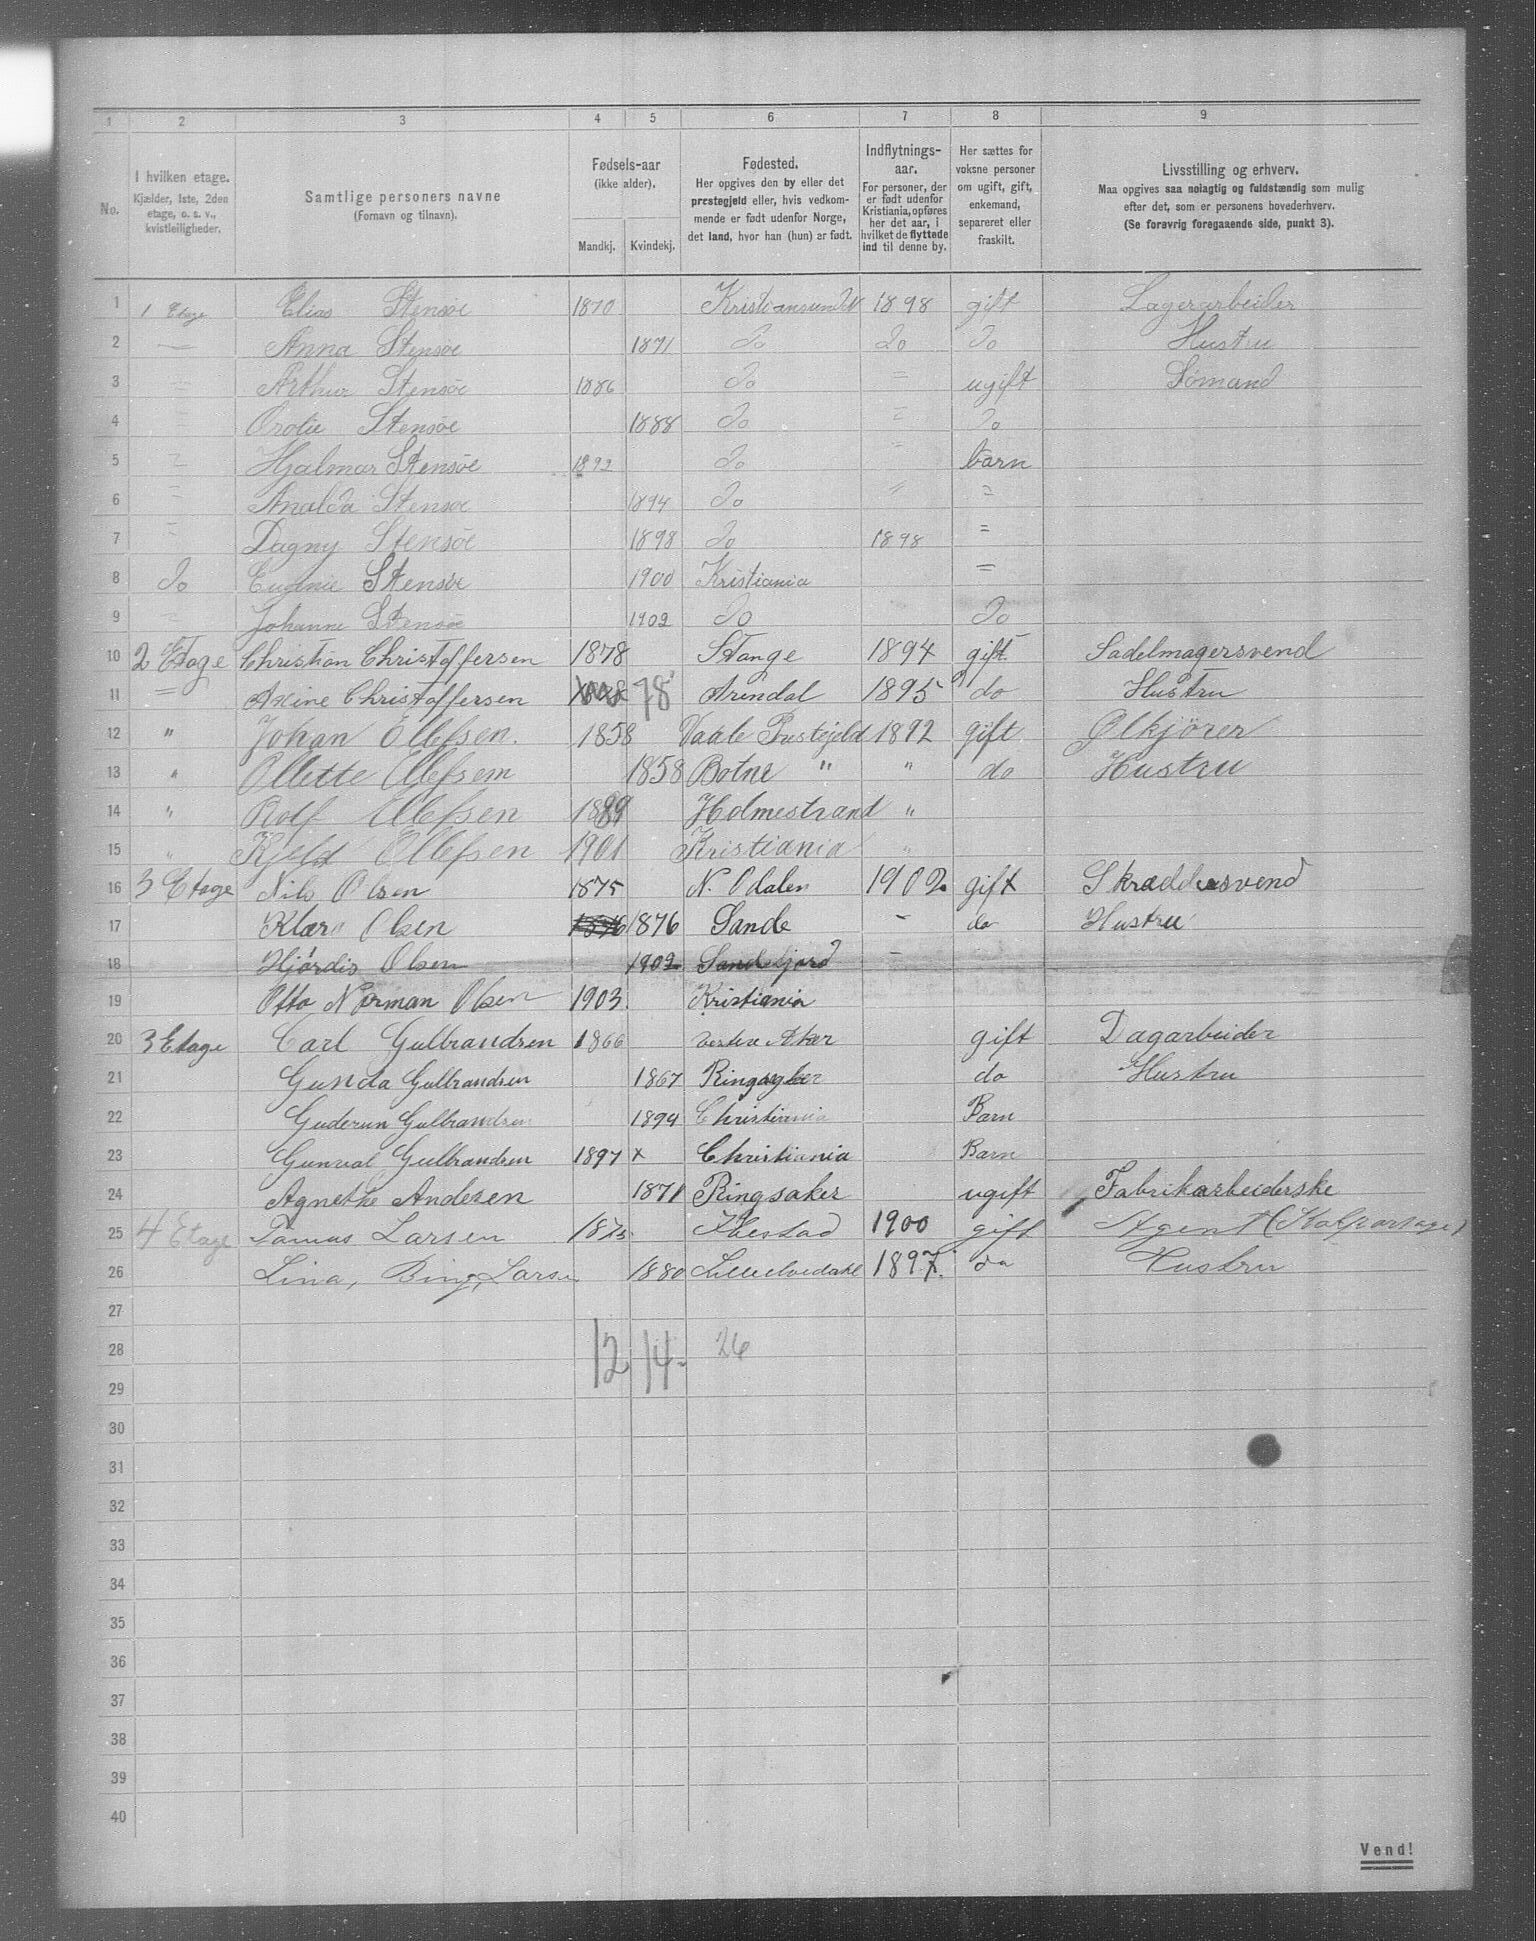 1 2 3 4 5 6 7 8 9
No.
I hvilken etage.
Kjælder, 1ste, 2den
etage, o. s. v.,
kvistleiligheder.
Samtlige personers navne
(Fornavn og tilnavn).
Fødsels-aar
(ikke alder).
Mandkj. Kvindekj.
Fødested.
Her opgives den by eller det
prestegjeld eller, hvis vedkom-
mende er født udenfor Norge,
det land, hvor han (hun) er født.
Indflytnings-
aar.
For personer, der
er født udenfor
Kristiania, opføres
her det aar, i
hvilket de flyttede
ind til denne by.
Her sættes for
voksne personer
om ugift, gift,
enkemand,
separeret eller
fraskilt.
Livsstilling og erhverv.
Maa opgives saa nøiagtig og fuldstændig som mulig
efter det, som er personens hovederhverv.
(Se forøvrig foregaaende side, punkt 3).
1 1 Etage Elias Stensöe 1870 Kristiansund N 1898 gift Lagerarbeider
2 — Anna Stensöe 1871 Do Do Do Hustru
3 = Arthur Stensöe 1886 Do = ugift Sömand
4 = Stensöe 1888 Do = Do
5 = Hjalmar Stensöe 1892 Do " barn
6 = Stensöe 1894 Do " =
7 = Dagny Stensöe 1898 Do 1898 =
8 Do Eugenie Stensöe 1900 Kristiania =
9 = Johanne Stensöe 1902 Do Do
10 2 Etage Christian Christoffersen 1878 Stange 1894 gift Sadelmagersvend
11 = Axine Christoffersen 1878 78 Arendal 1895 do Hustru
12 " Johan Ellefsen. 1858 Vaale Prestegjeld 1892 gift Ølkjører
13 " Ollette Ellefsem 1858 Botne " " do Hustru
14 " Rolf Ellefsen 1889 Holmestrand "
15 " Kjeld Ellefsen 1901 Kristiania "
16 3 Etage Nils Olsen 1875 N. Odalen 1902 gift Skræddersvend
17 Klara Olsen 1876 1876 Sande – do Hustru
18 Hjördis Olsen 1902 Sandefjord –
19 Otto Norman Olsen 1903 Kristiania
20 3 Etage Carl Gulbrandsen 1866 vestre Aker gift Dagarbeider
21 Gunda Gulbrandsen 1867 Ringsager do Hustru
22 Guderun Gulbrandsen 1894 Christiania Barn
23 Gunval Gulbrandsen 1897 x Christiania Barn
24 Agnethe Andersen 1871 Ringsaker ugift Fabrikarbeiderske
25 4 Etage Larsen 1875 Ibestad 1900 gift Agent
26 Lina, Bing, Larsen 1880 1897. do Hustru
27
28 12 14 26
29
30
31
32
33
34
35
36
37
38
39
40
Vend!